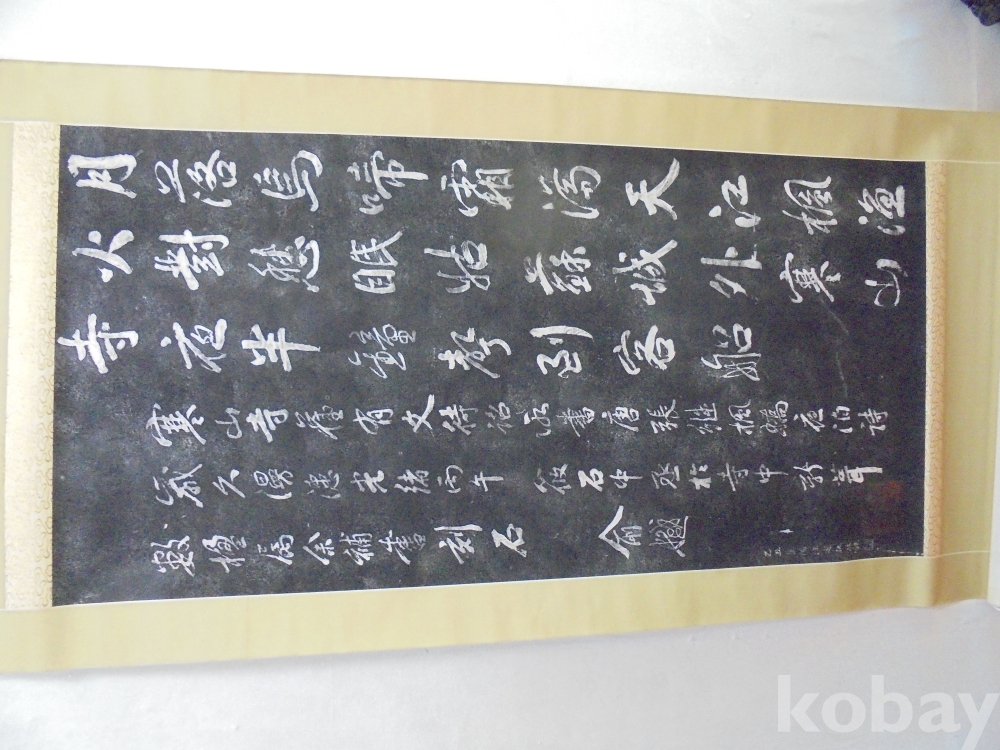 月落烏啼霜滿天江楓漁
火對愁眠姑蘇城外寒山
寺夜半鐘聲到客船
寒山寺舊有文待詔所書唐張繼楓橋夜泊詩
歲久漫漶光緒丙午筱石中丞於寺中新葺
數楹屬余補書刻石 俞樾
kobay